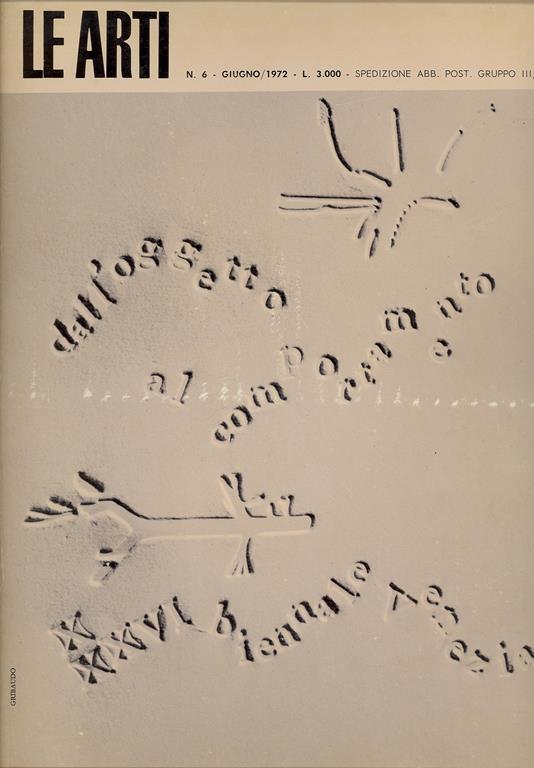 LE ARTI
N. 6 - GIUGNO/1972 - L. 3.000 - SPEDIZIONE ABB. POST. GRUPPO III
dall'oggetto
al comportamento
XXXVI biennale Venezia
GRIBAUDO